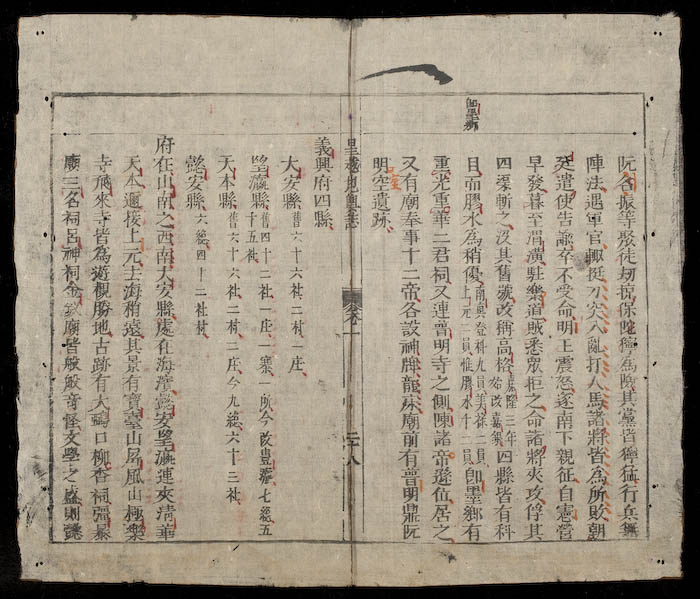 即墨鄉
阮名振等聚徒刼掠保陀獰為險其黨皆獰猛行兵無
陣法遇軍官輙挺刀突入亂打人馬諸將皆為所敗朝
廷遣使告諭卒不受命明王震怒逐南下親征自憲營
早發暮至渭潢駐樂道賊悉眾拒之命諸將夾攻俘其
四渠斬之沒其舊號改稱高格嘉隆三年始改嘉葉四縣皆有科
目而膠水為稍優南真登科九員美祿二員上元二員惟膠水十二員即墨鄉有
重光重華二君祠又連普明寺之側陳諸帝遜位居之
又有廟奉事十二帝各設神牌龍床廟前有普明鼎阮
明空遺跡
皇越地輿誌
卷一
二十八
義興府四縣
大安縣舊六十六社二村一庄
望瀛縣舊四十二社一庄一寨一所今改豊瀛七總五十五社
天本縣舊六十六社二村二庄今九總六十三社
懿安縣六總四十二社村
府在山南之西南大安縣處在海濱懿安望瀛連夾清華
天本邇接上元去海稍遠其景有寶臺山屏風山極樂
寺飛來寺皆為遊觀勝地古跡有大鴉口柳杏祠彊暴
廟三名祠呂神祠金 廟皆殷殷奇怪文學之盛則懿